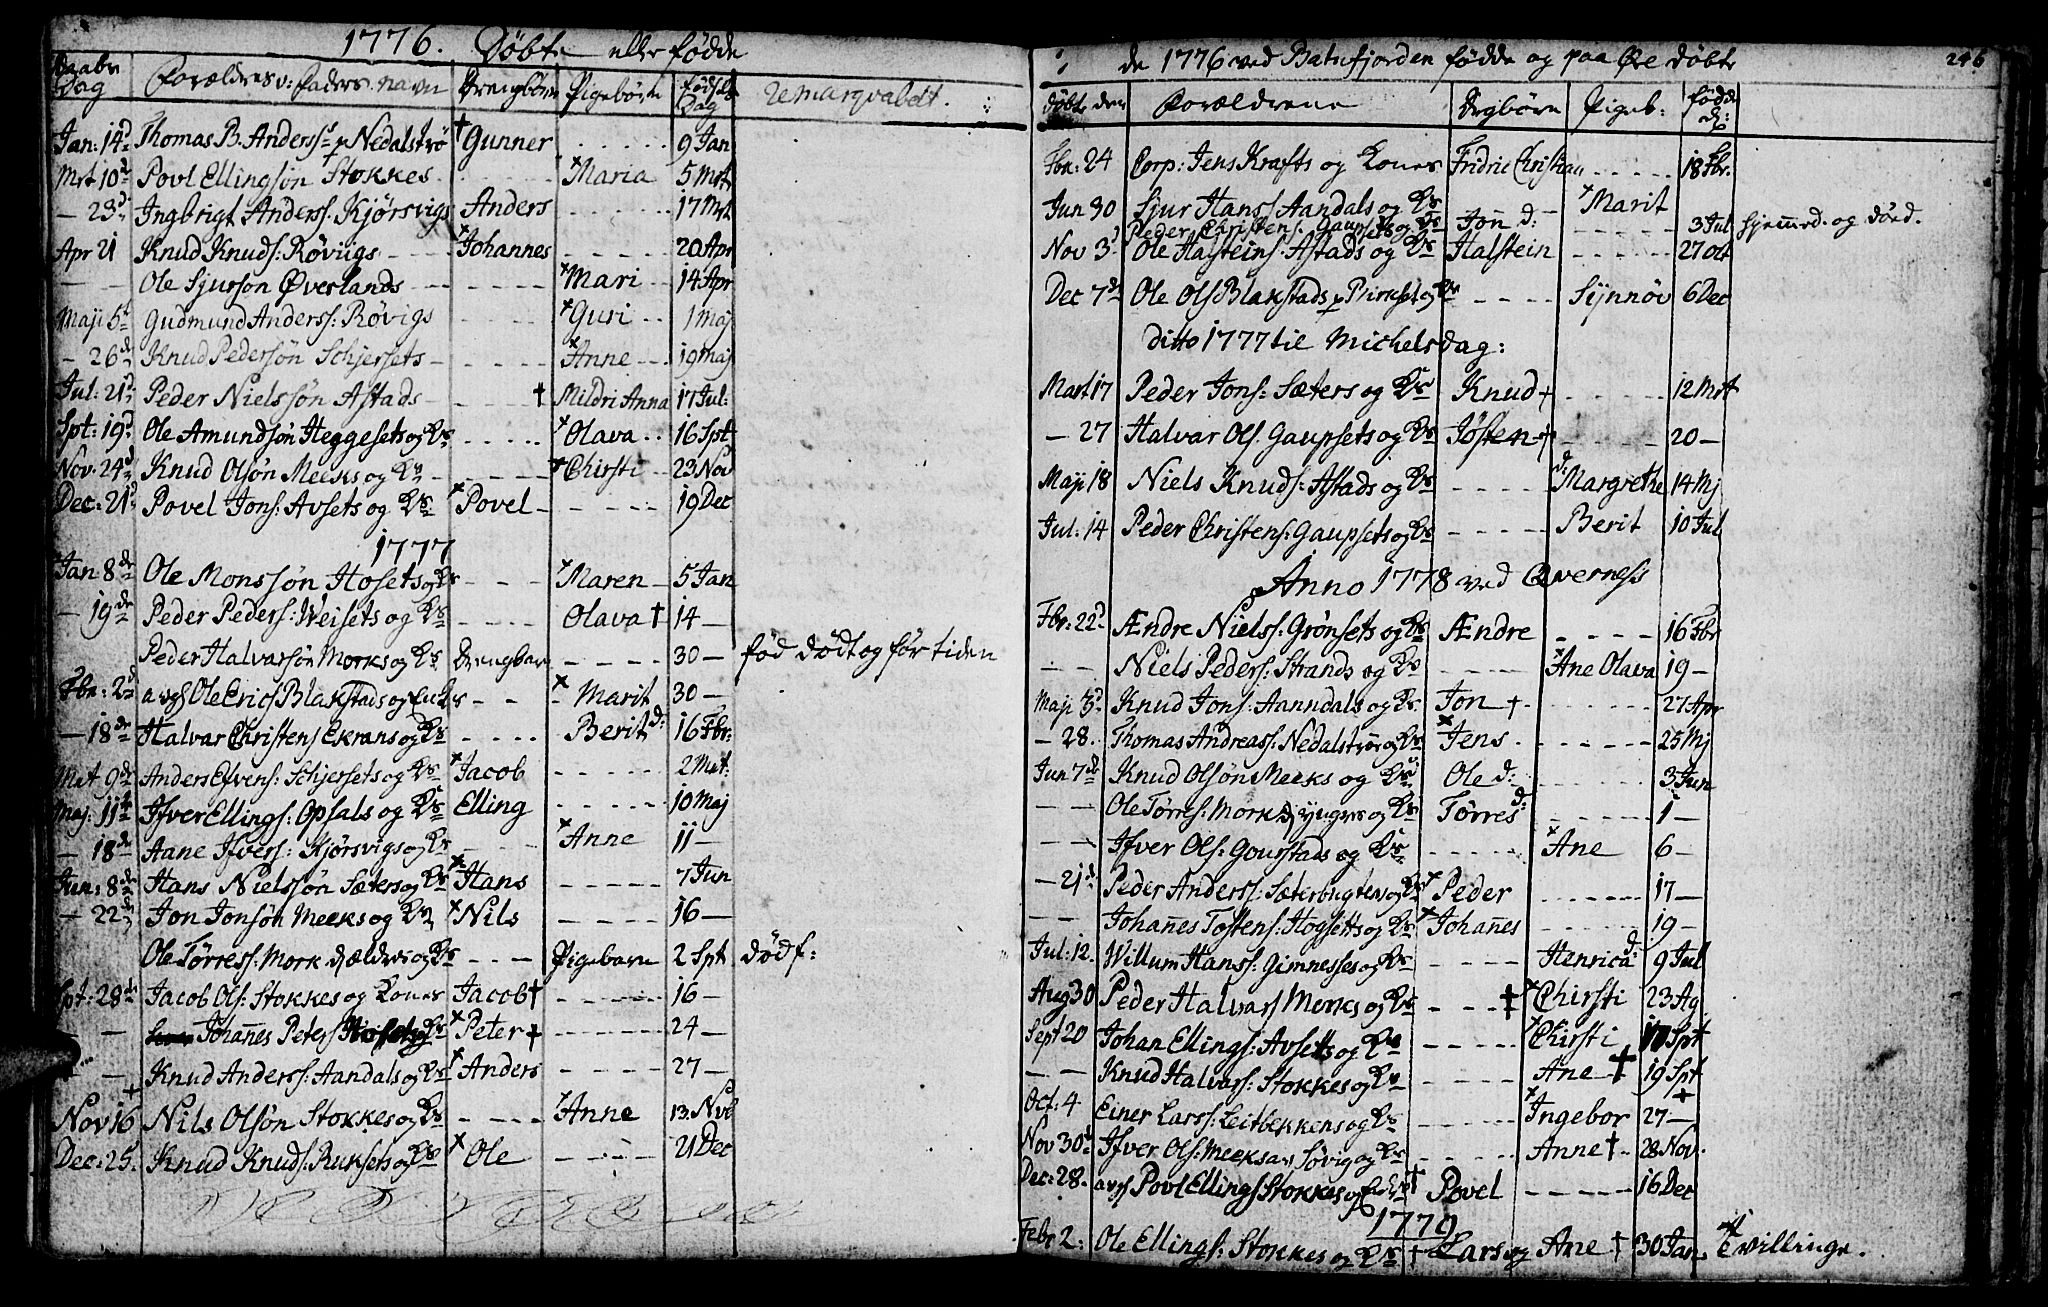 1776. Døbte eller fødde
Daabs Dag | Forældrenes v: Faders navn | Drengbørn | Pigebørn | fødsels Dag | Remarqvabelt.
Jan: 14d | Thomas B. Anderss: p Nedalstrø | † Gunner | ..... | 9 Jan
Mrt 10d | Povl Ellingsøn Stokkes | ..... | × Maria | 5 Mrt
— 23d | Ingbrigt Anderss: Kjørsvigs | Anders | ..... | 17 Mrt
Apr 21 | Knud Knuds: Røvigs | × Johannes | ..... | 20 Apr
— — | Ole Sjursøn Øverlands | ..... | × Mari | 14 Apr
Maji 5t | Gudmund Anderss: Røvigs | ..... | × Guri | 1 Maj
— 26de | Knud Pedersøn Schjersets | ..... | × Anne | 19 Maj
Jul: 21d | Peder Nielssøn Astads | ..... † | Mildri Anna | 17 Jul:
Spt: 19d | Ole Amundsøn Heggesets og Ks | ..... | × Olava | 16 Spt
Nov. 24d | Knud Olsøn Meeks og Ks | ..... | × Chirsti | 23 Nov
Dec: 21d | Povel Jons: Avsets og Ks | × Povel | ..... | 19 Dec
1777
Jan 8de | Ole Monssøn Hosets og Ks | ..... | × Maren | 5 Jan
— 19de | Peder Peders: Weisets og Ks | ..... | Olava † | 14 —
Peder Halvarsøn Morks og Ks | Drengbarn | ..... | 30 — | fød dødt og før tiden
Fbr: 2d | avgs Ole Erics Blakstads og Enkes | ..... | × Marit | 30 —
— 18de | Halvar Christens Ekrans og Ks | ..... | Berit d: | 16 Fbr:
Mrt 9de | Anders Efvens: Schjersets og Ks | × Jacob | ..... | 2 Mrt:
Maj: 11t | Ifver Ellings: Opsals og Ks | Elling | ..... | 10 Maj
— 18de | Aane Ifvers: Kjørsvigs og Ks | ..... | × Anne | 11 —
Jun: 8de | Hans Nielssøn Sæters og Ks | × Hans | ..... | 7 Jun
— 22d | Jon Jonsøn Meeks og Ks | × Nils | ..... | 16 —
Ole Tørress: Mork d ældres og Ks | ..... | Pigebarn | 2 Spt | død f:
Spt: 28de | Jacob Ols: Stokkes og Kones | Jacob † | ..... | 16 —
— | Johañes Peters Hosets og Ks | × Peter † | ..... | 24 —
— | Knud Anderss: Aandals og Ks | × Anders | ..... | 27 —
Nov 16 | Nils Olsøn Stokkes og Ks | ..... | × Anne | 13. Nov
Dec: 25. | Knud Knuds: Ruksets og Ks | × Ole | ..... | 21 Dec
de 1776 ved Batnfjorden fødde og paa Øre døbte | 246
døbte den | Forældrene | Drgbørn | Pigeb: | fødde d:
Fbr: 24 | Corp: Jens Krafts og Kones | Fridric Christian | ..... | 18 Fbr.
Jun 30 | Sjur Hans: Aandals og Ks | ..... | × Marit
Peder Christens: Gaupsets og Ks | Jon d: | ..... | 3 Jul | hjemed. og død.
Nov 3d | Ole Halsteins: Astads og Ks | Halstein | ..... | 27 Oct
Dec 7d | Ole Ols Blakstads p Birkset og Ks | ..... | Synnøv | 6 Dec
ditto 1777 til Michelsdag:
Mart 17 | Peder Jons: Sæters og Ks | Knud † | ..... | 12 Mrt
— 27 | Halvar Ols. Gaupsets og Ks | Jøsten † | ..... | 20 —
Maji 18 | Niels Knuds: Astads og Ks | ..... | d: Margrethe | 14 Mj
Jul: 14 | Peder Christens: Gaupsets og Ks | ..... | Berit | 10 Jul
Anno 1778 ved Qverness
Fbr: 22d | Ændre Nielss: Grønsets og Ks | Ændre | ..... | 16 Fbr
— — | Niels Peders: Strands og Ks | ..... | × Ane Olava | 19 —
Maji 3d | Knud Jons: Aanndals og Ks | Jon † | ..... | 27 Apr
— 28. | Thomas Andreass: Nedalstrøe og Ks | × Jens | ..... | 25 Mj
Jun 7de | Knud Olsøn Meeks og Ks | Ole d: | ..... | 3 Jun
— — | Ole Tørres: Mork d yngres og Ks | Tørres d: | ..... | 1 —
— — | Ifver Ols: Gourstads og Ks | ..... | × Ane | 6 —
— 21d | Peder Anderss: Sæterbugtens og Ks | × Peder | ..... | 17 —
— — | Johañes Tostens: Hogsetts og Ks | × Johañes | ..... | 19 —
Jul: 12. | Willum Hanss: Gimnesses og Ks | ..... | Henrica d: | 9 Jul
Aug 30 | Peder Halvars Morks og Ks | ..... † | × Chirsti | 23 Ag
Sept 20 | Johan Ellings: Avsetts og Ks | ..... | × Chirsti | 17 Spt
— — | Knud Halvars: Stokkes og Ks | ..... | Ane † | 19 Spt
Oct: 4 | Einer Larss: Leitbekkens og Ks | ..... | × Ingebor | 27 —
Nov 30t | Ifver Ols: Meeksas Søvig og Ks | ..... | Anne † | 28 Nov.
Dec: 28. | avgs Povl Ellings Stokkes og Enkes | † Povel | ..... | 16 Dec
1779
Febr 2: | Ole Ellings: Stokkes og Ks | † Lars og | Ane † | 30 Jan | Tvillinge.